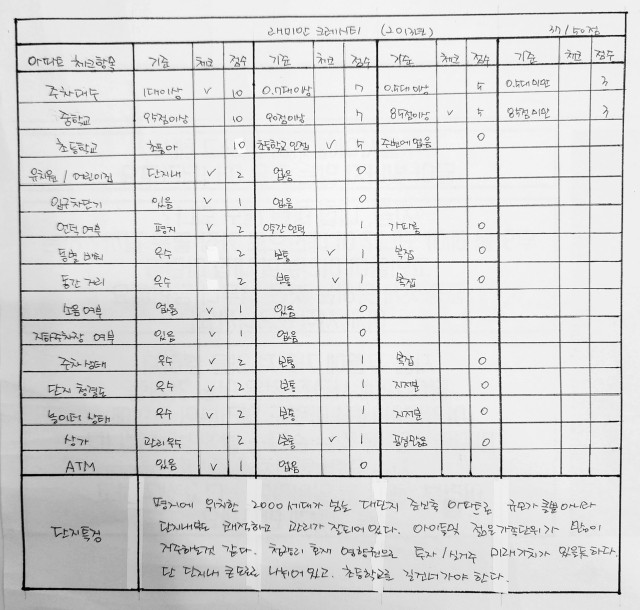 래미안 크레시티 (2013년) 37/50점
아파트 체크항목 기준 체크 점수 기준 체크 점수 기준 체크 점수 기준 체크 점수
주차대수 1대이상 v 10 0.7대이상 7 0.5대이상 5 0.5대미만 3
중학교 95점이상 10 90점이상 7 85점이상 v 5 85점미만 3
초등학교 초품아 10 초등학교 인접 v 5 주변에 없음 0
유치원 / 어린이집 단지내 v 2 없음 0
입구차단기 있음 v 1 없음 0
언덕 여부 평지 v 2 약간 언덕 1 가파름 0
동별 배치 우수 2 보통 v 1 복잡 0
동간 거리 우수 2 보통 v 1 복잡 0
소음 여부 없음 v 1 있음 0
지하주차장 여부 있음 v 1 없음 0
주차상태 우수 v 2 보통 1 복잡 0
단지 청결도 우수 v 2 보통 1 지저분 0
놀이터 상태 우수 v 2 보통 1 지저분 0
상가 관리 우수 2 보통 v 1 공실많음 0
ATM 있음 v 1 없음 0
단지특징
평지에 위치한 2000세대가 넘는 대단지 준신축 아파트로 규모가 클뿐아니라
단지내부도 쾌적하고 관리가 잘되어있다. 아이들및 젊은가족단위가 많이
거주하는것 같다. 청량리 호재 영향권으로 투자/실거주 미래가치가 있는듯하다.
단 단지내 큰도로로 나뉘어 있고. 초등학교를 길건너가야 한다.